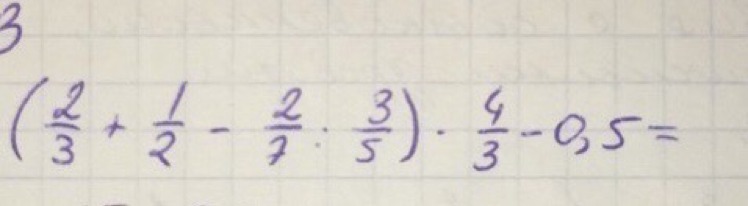 3
(2/3 + 1/2 - 2/7 · 3/5) · 4/3 - 0,5 =